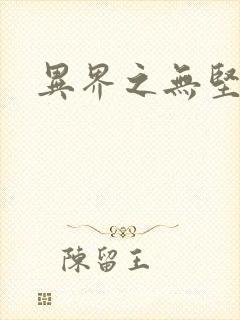 異界之無堅
陳留王